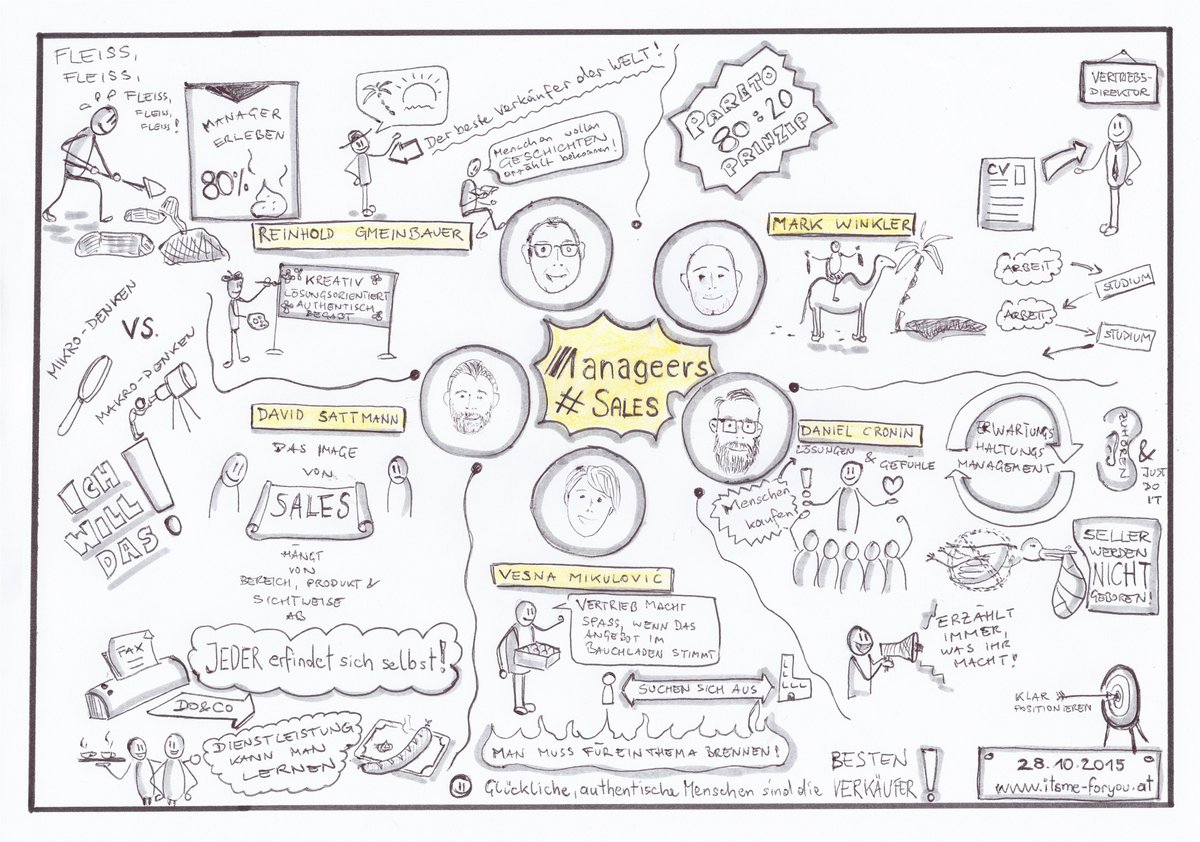 FLEISS,
FLEISS,
FLEISS,
FLEISS,
FLEISS!
MANAGER
ERLEBEN
80%
Der beste Verkäufer der WELT!
Menschen wollen
GESCHICHTEN
erzählt bekommen!
REINHOLD GMEINBAUER
PARETO
80:20
PRINZIP
MARK WINKLER
VERTRIEBS-
DIREKTOR
CV
ARBEIT
STUDIUM
ARBEIT
STUDIUM
KREATIV
LÖSUNGSORIENTIERT
AUTHENTISCH
BEGABT
MIKRO-DENKEN
VS.
MAKRO-DENKEN
Manageers
# SALES
DAVID SATTMANN
DAS IMAGE
VON
SALES
HÄNGT
VON
BEREICH, PRODUKT &
SICHTWEISE
AB
ICH
WILL
DAS!
DANIEL CRONIN
LÖSUNGEN
& GEFÜHLE
Menschen
kaufen
ERWARTUNGS
HALTUNGS
MANAGEMENT
ZUHÖREN
&
JUST
DO
IT
SELLER
WERDEN
NICHT
GEBOREN!
ERZÄHLT
IMMER,
WAS IHR
MACHT!
KLAR
POSITIONIEREN
VESNA MIKULOVIĆ
VERTRIEB MACHT
SPASS, WENN DAS
ANGEBOT IM
BAUCHLADEN STIMMT
SUCHEN SICH AUS
MAN MUSS FÜR EIN THEMA BRENNEN!
FAX
JEDER erfindet sich selbst!
DO&CO
DIENSTLEISTUNG
KANN MAN
LERNEN
Glückliche, authentische Menschen sind die BESTEN
VERKÄUFER!
28.10.2015
www.itsme-foryou.at